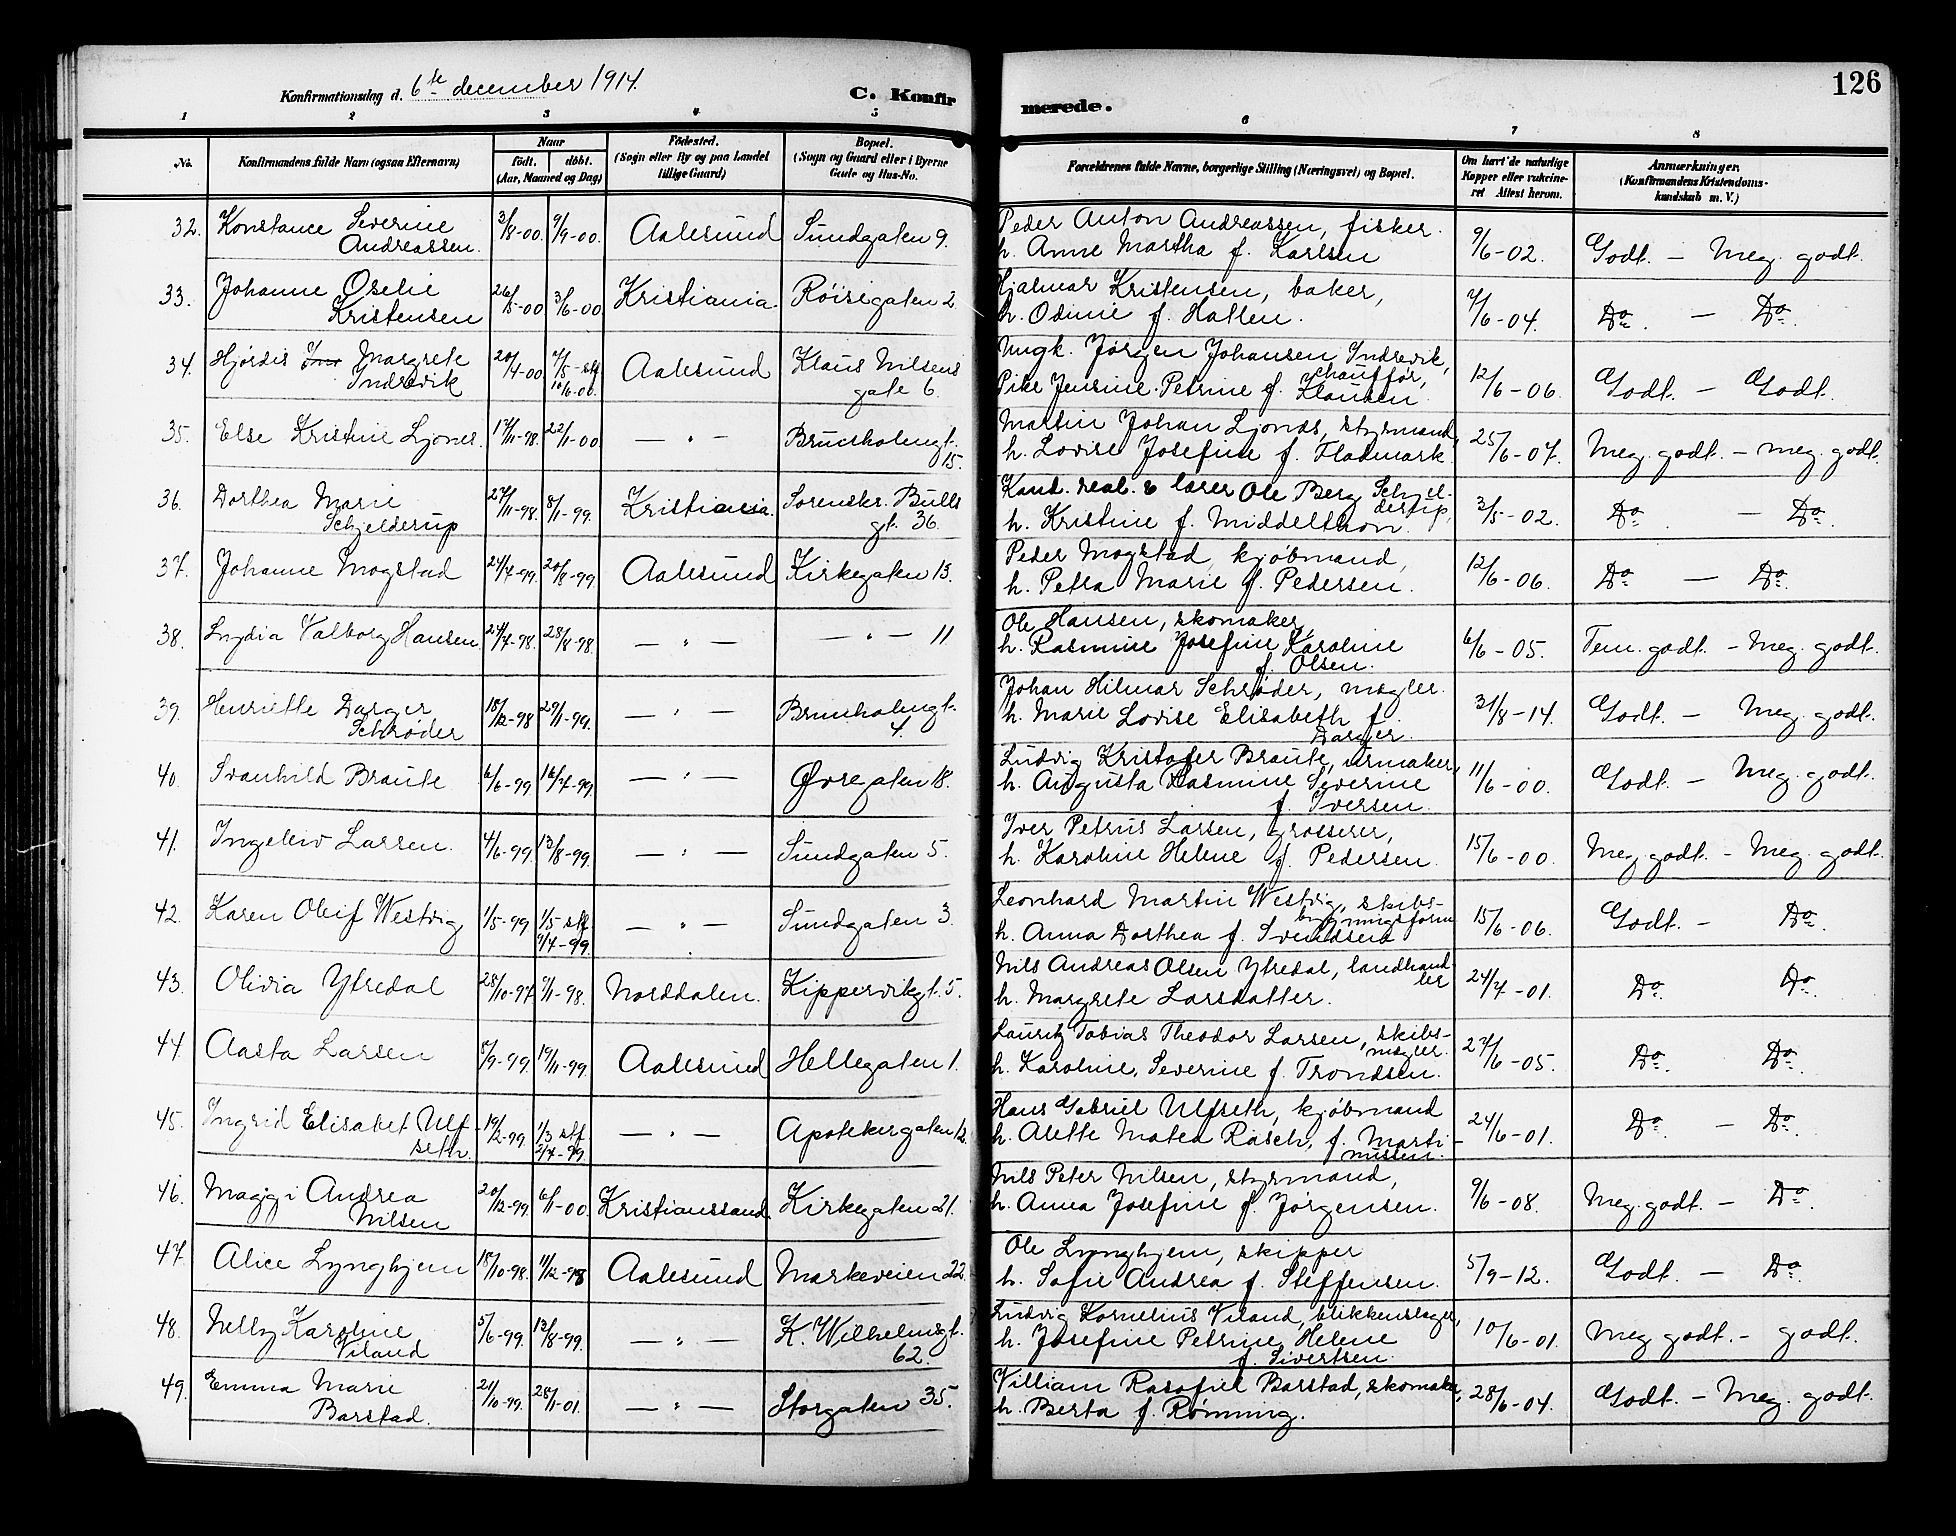 Konfirmationsdag d. 6te december 1914.
C. Konfirmerede.
126
1 2 3 4 5 6 7 8
No. Konfirmandens fulde Navn (ogsaa Efternavn) Naar født. døbt. (Aar, Maaned og Dag) Fødested. (Sogn eller By og paa Landet tillige Gaard) Bopæl. (Sogn og Gaard eller i Byerne Gade og Hus-No. Forældrenes fulde Navne, borgerlige Stilling (Næringsvei) og Bopæl. Om havt de naturlige Kopper eller vakcineret Attest herom. Anmærkninger. (Konfirmandens Kristendomskundskab m. V.)
32. Konstance Severine Andreassen. 3/8-00. 9/9-00. Aalesund Sundgaten 9. Peder Anton Andreassen, fisker. h. Anne Martha f. Karlsen 9/6-02. Godt. — Meg. godt.
33. Johanne Oselie Kristensen 26/5-00 3/6-00. Kristiania. Røisegaten 2. Hjalmar Kristensen, baker, h. Odine f. Hatlen. 7/6-04. Do. — Do.
34. Hjørdis Margrete Indrevik 20/4-00 /5- stf 10/6-00. Aalesund Klaus Nilsens gate 6. Ungk. Jørgen Johansen Indrevik, chauffør, Pike Jensine Petrine f. Klausen. 12/6-06. Godt. — Godt.
35. Else Kristine Ljones. 17/11-98. 22/11-00. — " — Brunholmgt. 15. Martin Johan Ljones, styrmand, h. Lovise Josefine f. Fladmark. 25/6-07. Meg. godt. — meg. godt.
36. Dorthea Marie Schjelderup 27/11-98. 8/11-99. Kristiania Sorenskr. Bulls gt. 36. Kand. real. & lærer Ole Berg Schjelderup, h. Kristine f. Middelthon. 3/5-02. Do. — Do.
37. Johanne Mogstad 24/7-99. 20/8-99 Aalesund Kirkegaten 13. Peder Mogstad, kjøbmand, h. Petra Marie f. Pedersen. 12/6-06. Do. — Do.
38. Lydia Valborg Hansen 24/7-98. 28/8-98. — " — — " — 11 Ole Hansen, skomaker, h. Rasmine Josefine Karoline f. Olsen. 6/6-05. Tem. godt. — Meg. godt.
39. Henriette Darger Schrøder 18/12-98 29/11-99. — " — Brunholmgt. 4. Johan Hilmar Schrøder, mægler. h. Marie Lovise Elisabeth f. Darger. 31/8-14. Godt. — Meg. godt.
40. Svanhild Braute 6/6-99 16/7-99 — " — Øvregaten 18. Ludvig Kristofer Braute, urmaker, h. Augusta Rasmine Severine f. Iversen. 11/6-00. Godt. — Meg. godt.
41. Ingeleiv Larsen. 4/6-99. 13/8-99. — " — Sundgaten 5. Iver Petrus Larsen, grosserer, h. Karoline Helene f. Pedersen. 15/6-00. Meg. godt. — Meg. godt.
42. Karen Oleif Westvig 1/5-99 1/5 stf 9/7-99 — " — Sundgaten 3. Leonhard Martin Westvig, skibsbygningsform h. Anna Dorthea f. Svendsen 15/6-06. Godt. — Do.
43. Olivia Ytredal 28/10-97 9/11-98. Norddalen. Kippervikgt. 5. Nils Andreas Olsen Ytredal, landhandler h. Margrete Larsdatter. 24/7-01. Do. Do.
44. Aasta Larsen /9-99. 19/11-99. Aalesund Hellegaten 1. Lauritz Tobias Theodor Larsen, skibsmægler. h. Karoline Severine f. Trondsen. 27/6-05. Do. Do.
45. Ingrid Elisabet Ulfseth. 19/2-99. 1/3 stf. 2/7-99. — " — Apotekergaten 12. Hans Gabriel Ulfseth, kjøbmand h. Alette Matea Rasch, f. Martinussen. 24/6-01. Do. — Do.
46. Maggi Andrea Nilsen 20/12-99. 6/1-00. Kristianssand. Kirkegaten 21. Nils Peter Nilsen, styrmand, h. Anna Josefine f. Jørgensen. 9/6-08. Meg. godt. — Do.
47. Alice Lynghjem 18/10-98. 11/12-98 Aalesund Markeveien 22. Ole Lynghjem, skipper h. Sofie Andrea f. Steffensen. 5/9-12. Godt. — Do.
48. Nelly Karoline Viland 5/6-99. 13/8-99. — " — K. Wilhelmsgt. 62. Ludvig Kornelius Viland, blikkenslager, h. Josefine Petrine Helene f. Sivertsen. 10/6-01. Meg godt. — godt.
49. Emma Marie Barstad. 21/10-99. 28/1-01. — " — Storgaten 35. William Rasafiel Barstad, skomaker, h. Berta f. Rønning. 28/6-04. Godt — Meg. godt.